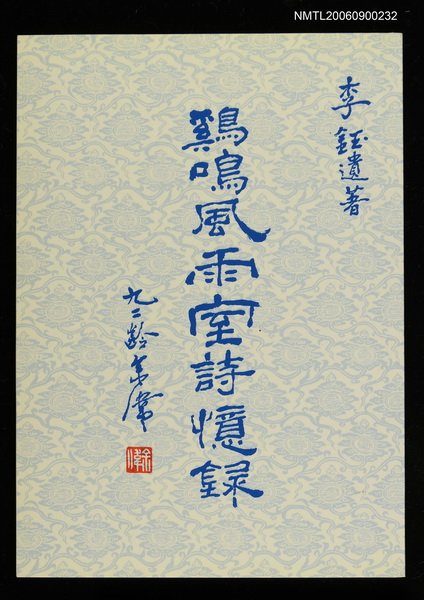 NMTL20060900232
李鈺遺著
鷄鳴風雨室詩憶録
九二齡